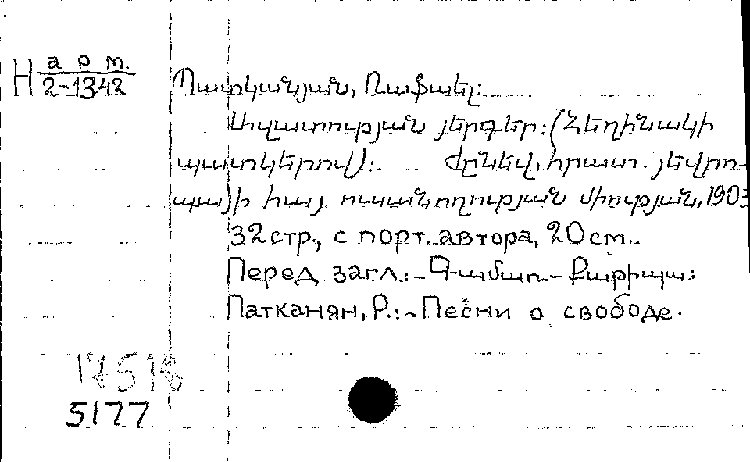 Н а р т.
2-1342
Պատկանյան, Ռաֆայել:
Ազատության յերգեր: (Հեղինակի
պատկերով): Ժընեվ, հրատ. յեվրո-
պայի հայ ուսանողության միության, 1903
32 стр., с порт. автора, 20 см.
Перед загл.: - Գամառ - Քաթիպա:
Патканян, Р.: - Песни о свободе.
17518
5177